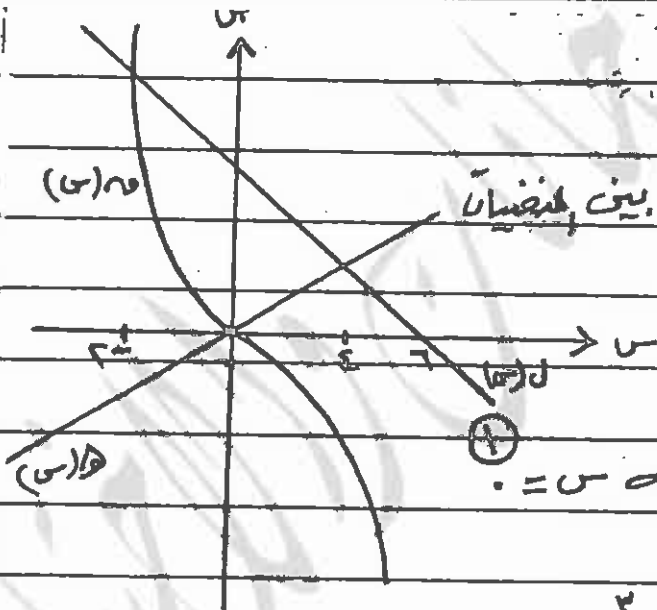 ص
ق(س)
بين المنحنيات
س
-٢
٤
٦
ل(س)
هـ(س)
١
س = ٠
٣